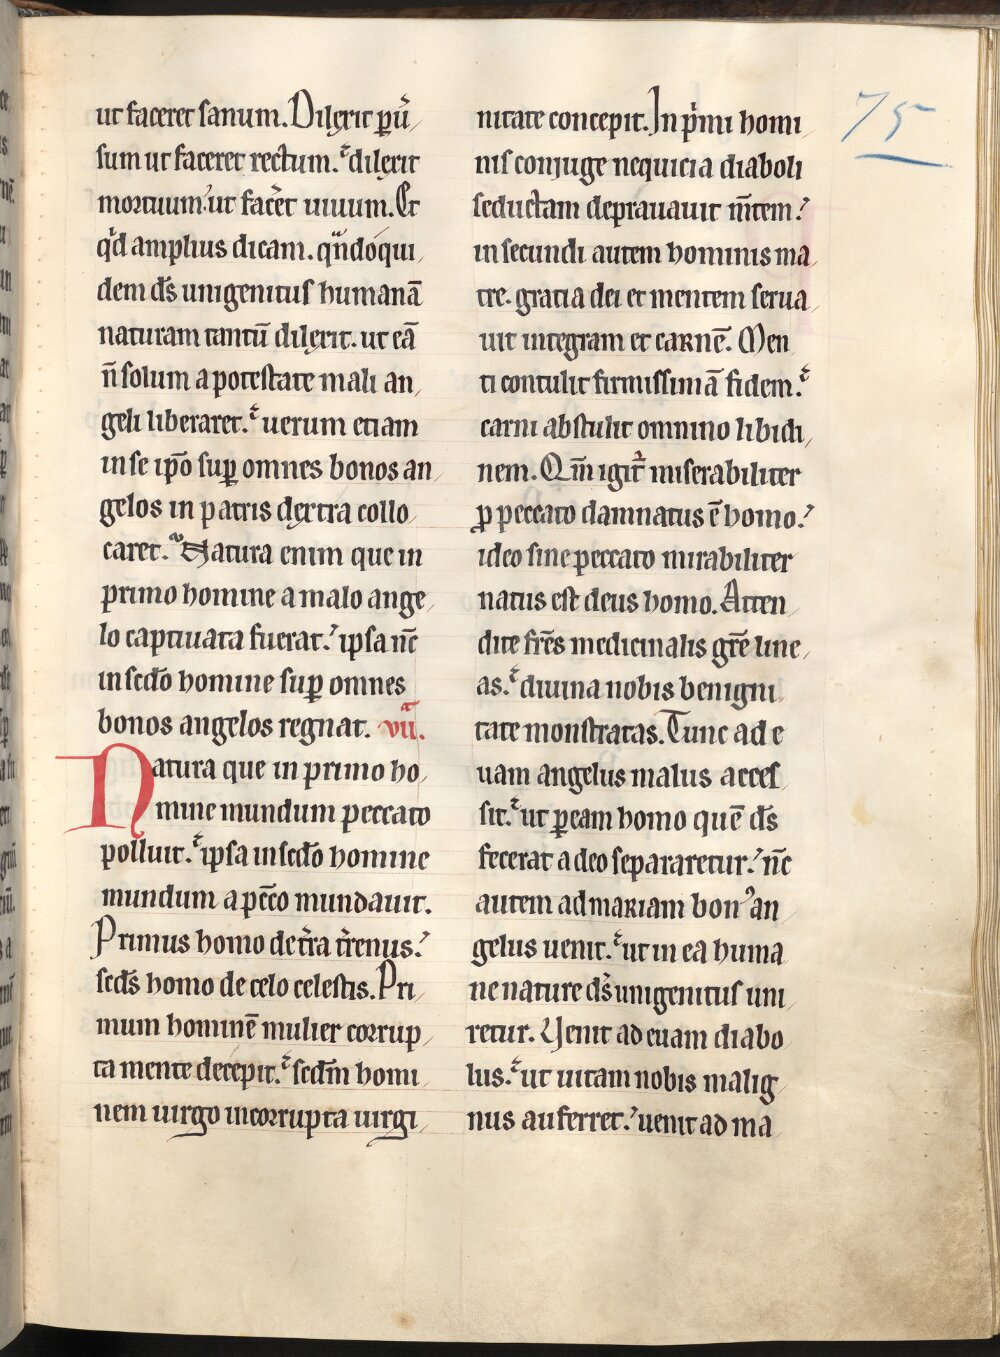 75
ut faceret sanum. Dilexit pͣuͥ
sum ut faceret rectum. dilexit
mortuum. ut facẽt uiuum. Et
qd̾ amplius dicam. qn̄doqui
dem ds̄ unigenitus humanā
naturam tantū dilexit. ut eā
n̄ solum a potestate mali an
geli liberaret. uerum etiam
in se ip̄o sup̱ omnes bonos an
gelos in patris dextra collo
caret. Natura enim que in
primo homine a malo ange
lo captiuata fuerat. ipsa nc̄
in sc̄do homine sup̱ omnes
bonos angelos regnat. vii.
Natura que in primo ho
mine mundum peccato
polluit. ipsa in sc̄do homine
mundum a pc̄co mundauit.
Primus homo de tr̄a tr̄enus.
sc̄ds homo de celo celestis. Pri
mum hominē mulier corrup
ta mente decepit. sc̄dm homi
nem uirgo incorrupta uirgi
nitate concepit. In pͥmi homi
nis conjuge nequicia diaboli
seductam deprauauit m̄tem.
in secundi autem hominis ma
tre. gratia dei et mentem serua
uit integram et carnē. Men
ti contulit firmissimā fidem.
carni abstulit omnino libidi
nem. Qm̄ igit᷑ miserabiliter
ꝓ peccato damnatus ē homo.
ideo sine peccato mirabiliter
natus est deus homo. Atten
dite fr̄es medicinalis gr̄e line
as. diuina nobis benigni
tate monstratas. Tunc ad e
uam angelus malus acces
sit. ut p̱eam homo quē ds̄
fecerat a deo separaretur. nc̄
autem ad mariam bonꝰ an
gelus uenit. ut in ea huma
ne nature ds̄ unigenitus uni
retur. Uenit ad euam diabo
lus. ut uitam nobis malig
nus auferret. uenit ad ma